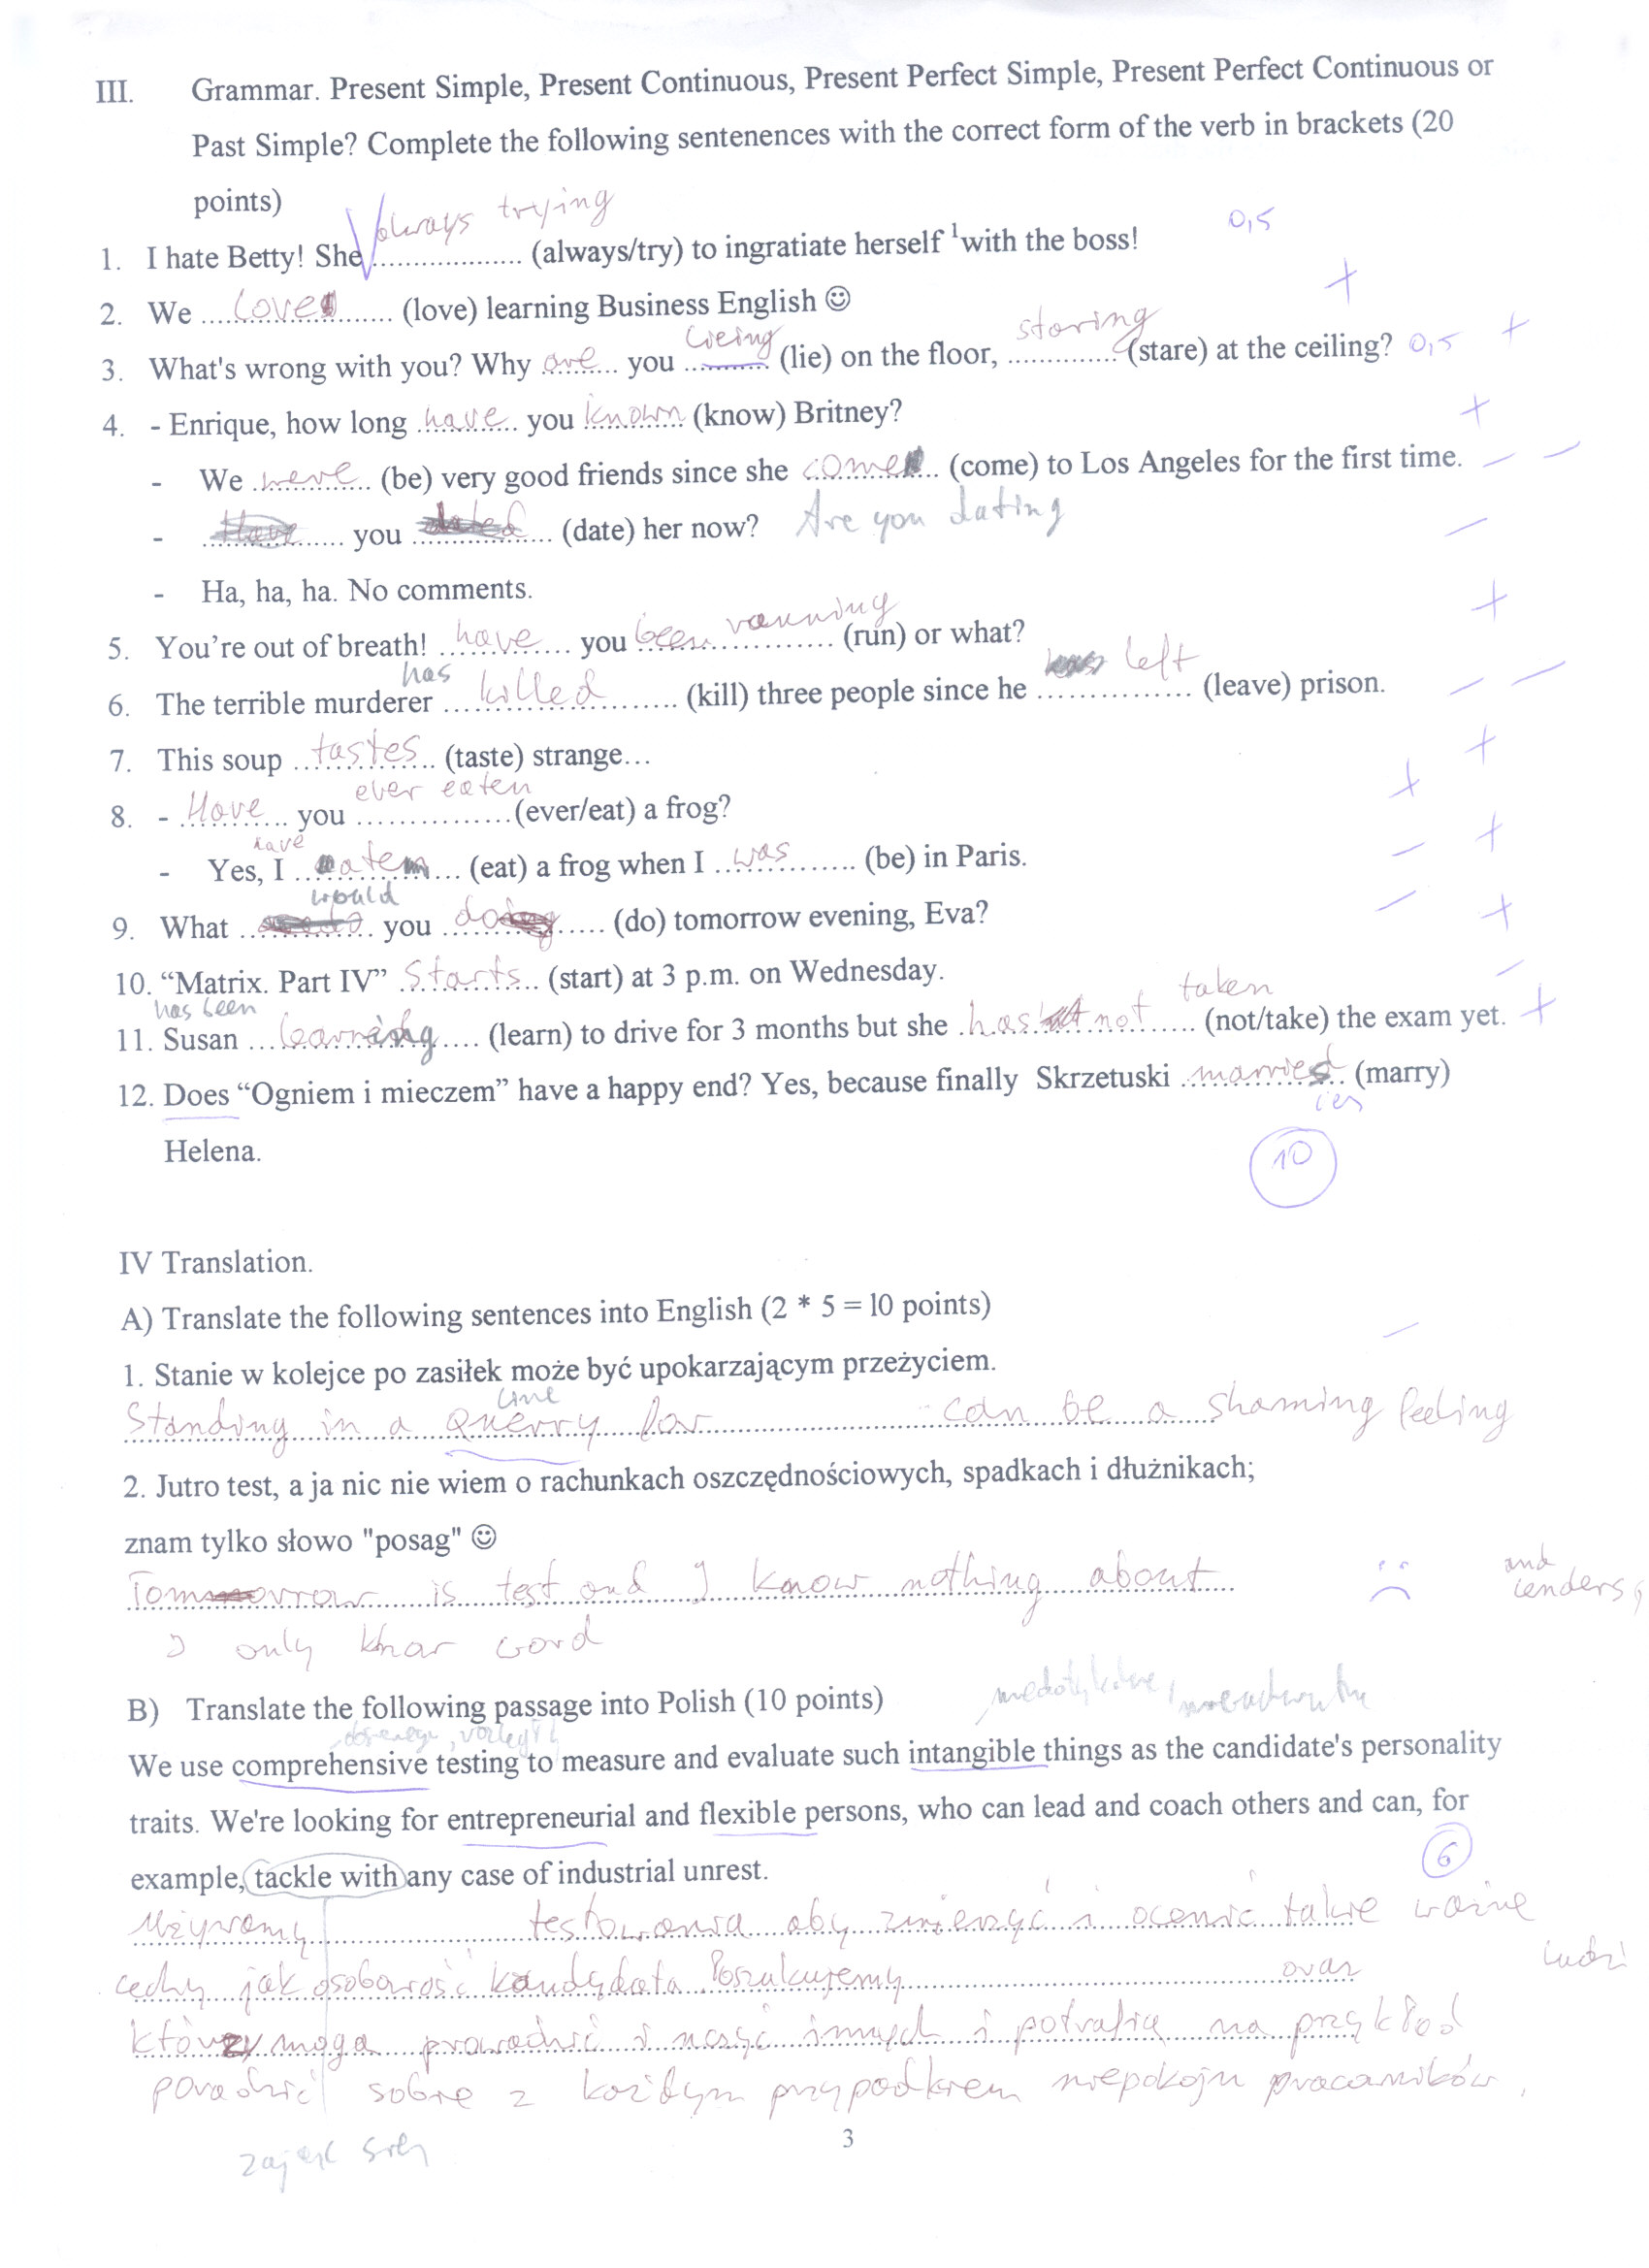 III. Grammar. Present Simple, Present Continuous, Present Perfect Simple, Present Perfect Continuous or
Past Simple? Complete the following sentenences with the correct form of the verb in brackets (20
points)
always trying
1. I hate Betty! She .................. (always/try) to ingratiate herself ¹with the boss! 0,5
2. We ....love........ (love) learning Business English ☺ +
lieing staring
3. What's wrong with you? Why are you .......... (lie) on the floor, ............. (stare) at the ceiling? 0,5 +
4. - Enrique, how long have you known (know) Britney? +
- We were (be) very good friends since she come (come) to Los Angeles for the first time. – –
- ................ you ................ (date) her now? Are you dating –
- Ha, ha, ha. No comments.
running +
5. You're out of breath! have you been ................ (run) or what?
has left
6. The terrible murderer killed (kill) three people since he .................. (leave) prison. – –
7. This soup tastes (taste) strange... +
ever eaten
8. - Have you ..................(ever/eat) a frog? +
have
- Yes, I eaten (eat) a frog when I was (be) in Paris. – +
would
9. What ................ you do (do) tomorrow evening, Eva? – +
10. “Matrix. Part IV” starts (start) at 3 p.m. on Wednesday. –
has been taken
11. Susan learning (learn) to drive for 3 months but she has not (not/take) the exam yet. +
12. Does “Ogniem i mieczem” have a happy end? Yes, because finally Skrzetuski married (marry)
ies
Helena.
10
IV Translation.
A) Translate the following sentences into English (2 * 5 = 10 points)
1. Stanie w kolejce po zasiłek może być upokarzającym przeżyciem. –
line
Standing in a querry for can be a shaming feeling
2. Jutro test, a ja nic nie wiem o rachunkach oszczędnościowych, spadkach i dłużnikach;
znam tylko słowo "posag" ☺
Tomorrow is test and I know nothing about and lenders,
I only know word
B) Translate the following passage into Polish (10 points)
We use comprehensive testing to measure and evaluate such intangible things as the candidate's personality
traits. We're looking for entrepreneurial and flexible persons, who can lead and coach others and can, for
example, tackle with any case of industrial unrest. 6
Używamy testowania aby zmierzyć i ocenić takie ważne
cechy jak osobowość kandydata. Poszukujemy oraz ludzi
którzy mogą prowadzić i uczyć innych i potrafią na przykład
poradzić sobie z każdym przypadkiem niepokoju pracowników.
zająć się
3